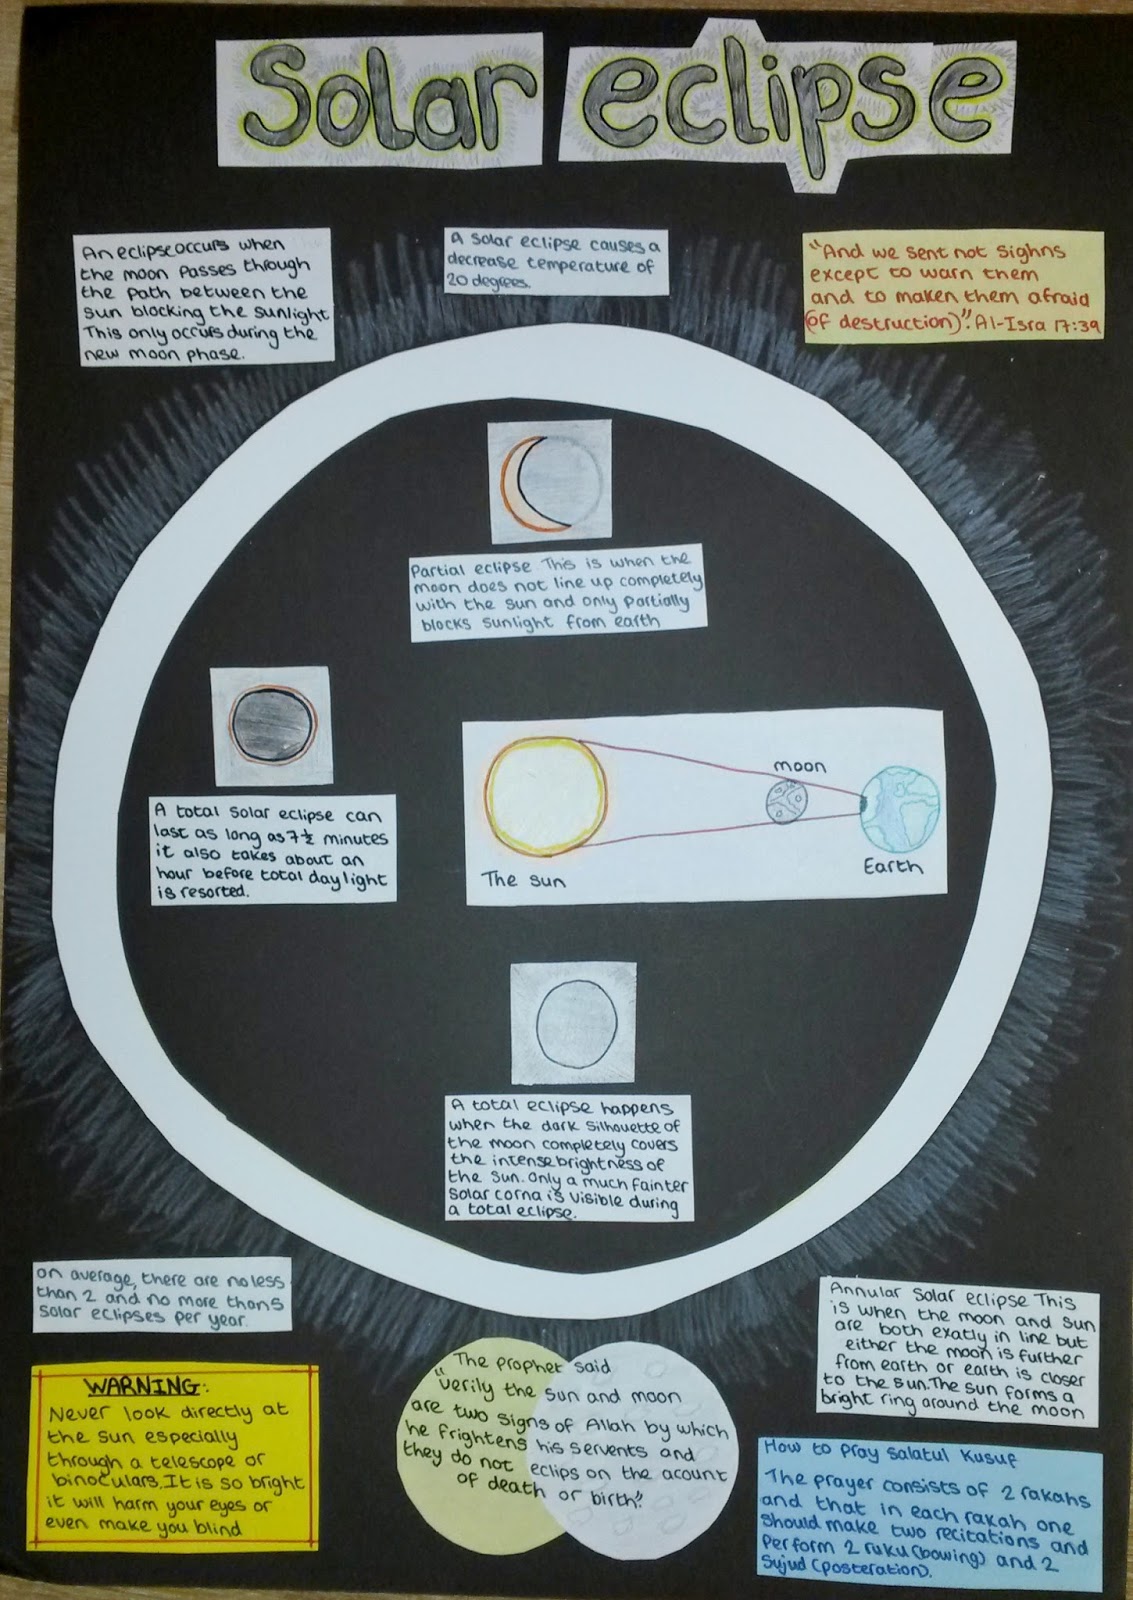 Solar eclipse
An eclipse occurs when
the moon passes through
the path between the
sun blocking the sunlight
This only occurs during the
new moon phase.
A solar eclipse causes a
decrease temperature of
20 degrees.
"And we sent not sighns
except to warn them
and to maken them afraid
(of destruction)". Al-Isra 17:39
Partial eclipse. This is when the
moon does not line up completely
with the sun and only partially
blocks sunlight from earth
A total solar eclipse can
last as long as 7½ minutes
it also takes about an
hour before total daylight
is resorted.
moon
The sun
Earth
A total eclipse happens
when the dark silhouette of
the moon completely covers
the intense brightness of
the sun. Only a much fainter
solar corna is visible during
a total eclipse.
on average, there are no less
than 2 and no more than 5
solar eclipses per year.
WARNING:
Never look directly at
the sun especially
through a telescope or
binoculars. It is so bright
it will harm your eyes or
even make you blind
The prophet said
"verily the sun and moon
are two signs of Allah by which
he frightens his servents and
they do not eclips on the acount
of death or birth".
Annular solar eclipse This
is when the moon and sun
are both exatly in line but
either the moon is further
from earth or earth is closer
to the sun. The sun forms a
bright ring around the moon
How to pray salatul Kusuf
The prayer consists of 2 rakahs
and that in each rakah one
should make two recitations and
perform 2 ruku (bowing) and 2
sujud (posteration).